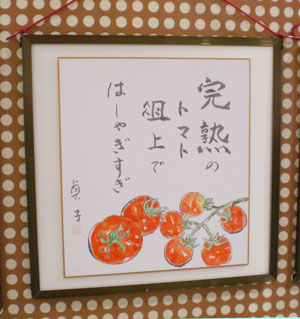 完熟の
トマト
俎上で
はしゃぎすぎ
貞子